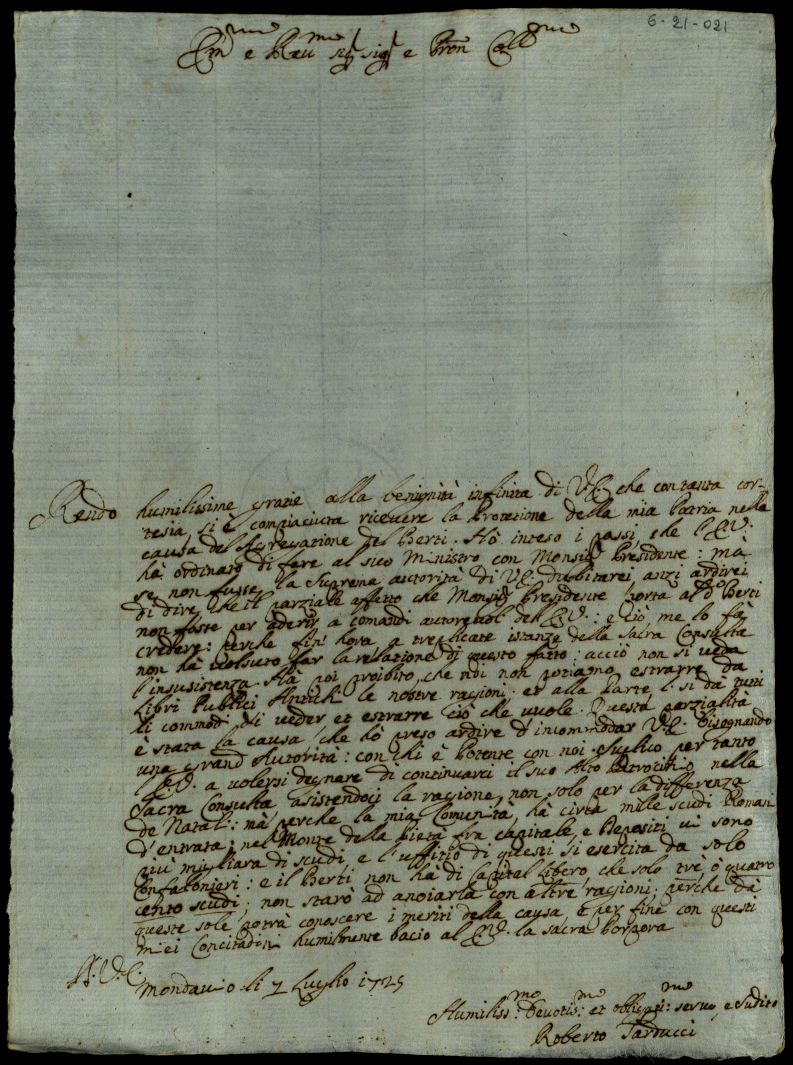 6-21-021
Em.mo e Rev.mo sig.r sig.r e Pron Coll.mo
Rendo humilissime grazie alla benignità infinita di V.E. che con tanta cor-
tesia, si è compiaciuta ricevere la Protezione della mia Patria nella
causa dell'Agregazione del Berti. Hò inteso i passi, che l'E.V.
hà ordinato di fare al suo Ministro con Monsig.r Presidente: mà
se non fusse la suprema autorità di V.E. dubbitarei, anzi ardirei
di dire, che il parziale affetto che Monsig.r Presidente porta al d.o Berti
non fosse per aderir a comandi autorevol dell'E.V.: e ciò me lo fà
credere: perche fin'hora a treplicate istanze della Sacra Consulta
non hà volsuto far la relazione di questo fatto: acciò non si veda
l'insusistenza. Hà poi proibito, che noi non potiamo estrarre da
libri Publici Antichi le nostre ragioni: et alla Parte li si dà tutti
li commodi di veder, et estrarre ciò che vuole. Questa parzialità
è stata la causa, che hò preso ardire d'incommodar V.E. bisognando
una grand'Autorità: con chi è Potente con noi. Suplico per tanto
l'E.V. a volersi degnare di continuarci il suo Alto Patrocinio nella
Sacra Consulta asistendoci la ragione, non solo per la differenza
de Natali: mà perche la mia Comunità, hà circa mille scudi Romani
d'entrata: nel Monte della Pietà frà capitale, e Depositi vi sono
più migliara di scudi, e l'uffitio di questi si esercita da solo
Confalonieri: e il Berti non hà di Capital libero, che solo trè, ò quatro
cento scudi: non starò ad anoiarla con altre ragioni: perche dà
queste sole potrà conoscere i meriti della causa, E per fine con questi
miei Concitadini humilmente bacio al E.V. la sacra Porpora
D.V.E.
Mondavio li 7 Luglio 1725
Humiliss.mo Devotis.mo et oblligati.mo servo, e sudito
Roberto Tarducci